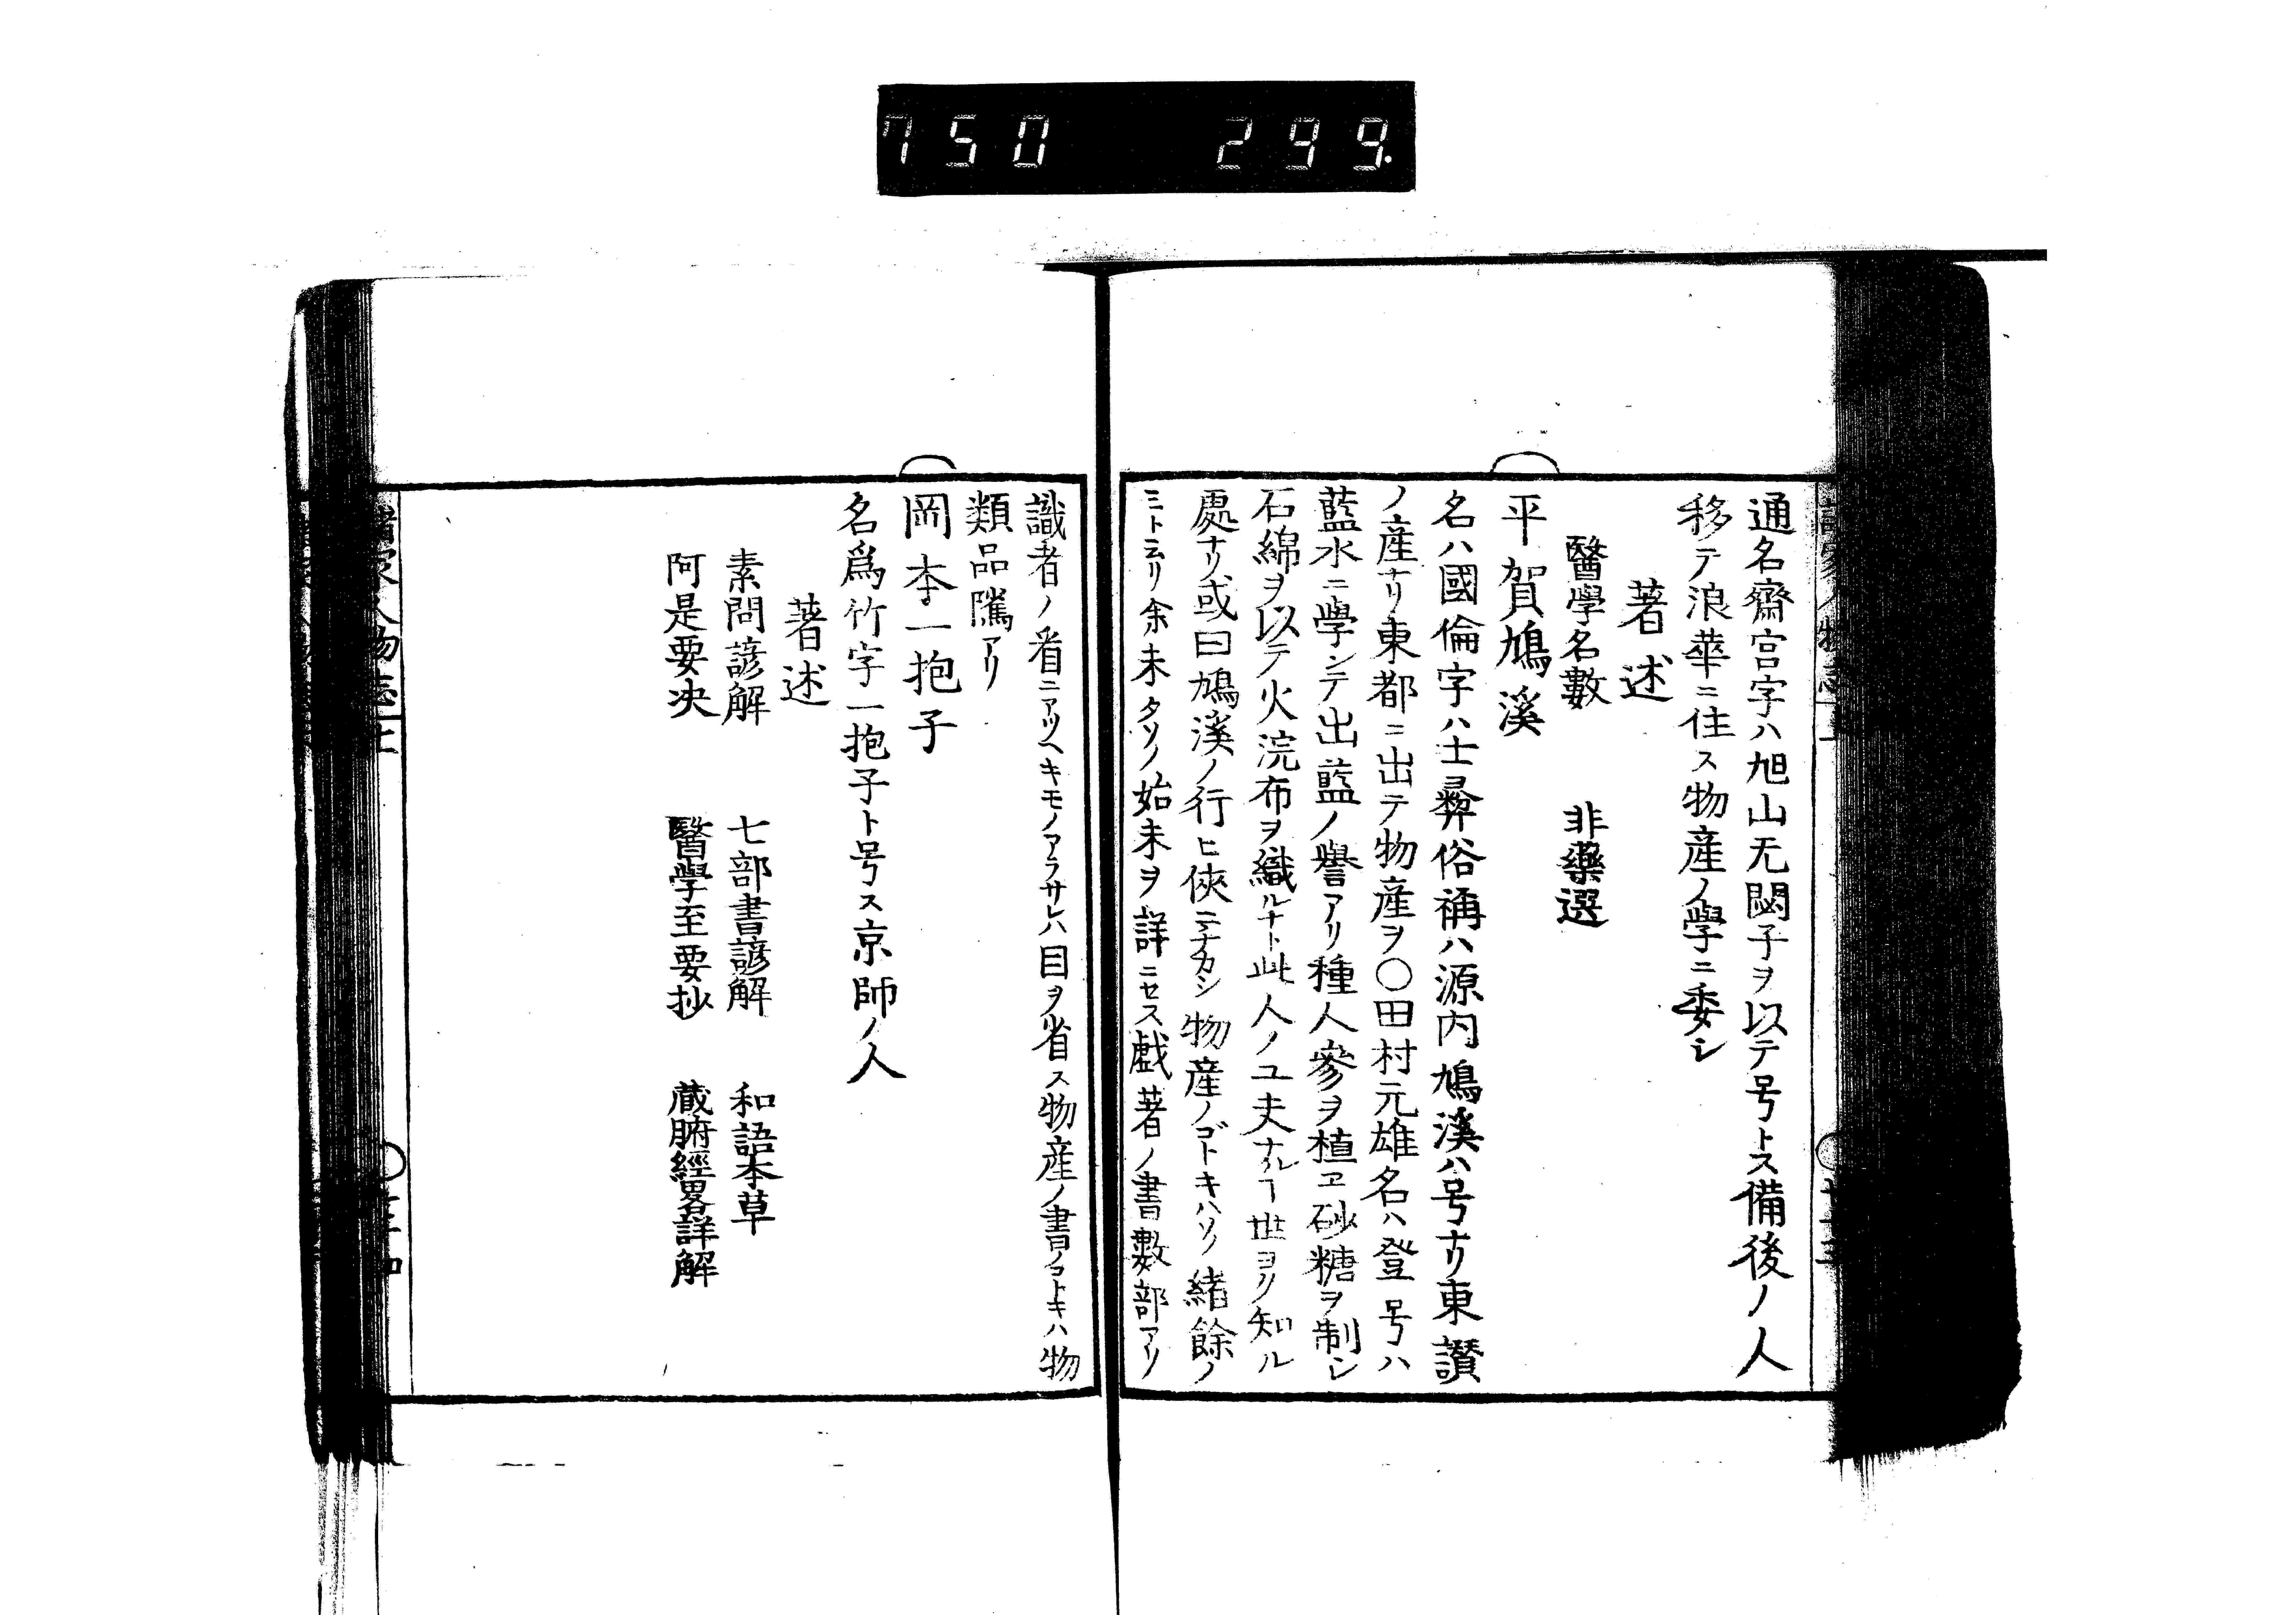 750 299.
通名齋宮字ハ旭山无閼子ヲ以テ号トス備後ノ人
移テ浪華ニ住ス物産ノ學ニ委シ
著述
醫學名數 非藥選
平賀鳩溪
名ハ國倫字ハ士彜俗稱ハ源内鳩溪ハ号ナリ東讃
ノ産ナリ東都ニ出テ物産ヲ〇田村元雄名ハ登号ハ
藍水ニ學シテ出藍ノ譽アリ種人參ヲ植ヱ砂糖ヲ制シ
石綿ヲ以テ火浣布ヲ織ルナト此人ノユ夫ナルヿ世ヨリ知ル
處ナリ或曰鳩溪ノ行ヒ俠ニチカシ物産ノゴトキハソノ緒餘ノ
ミト云リ余未タソノ始末ヲ詳ニセス戯著ノ書數部アリ
識者ノ看ニアツヘキモノアラサレハ目ヲ省ス物産ノ書ノコトキハ物
類品隲アリ
岡本一抱子
名爲竹字一抱子ト号ス京師ノ人
著述
素問諺解 七部書諺解 和語本草
阿是要决 醫學至要抄 藏腑經畧詳解
諸家人物志上